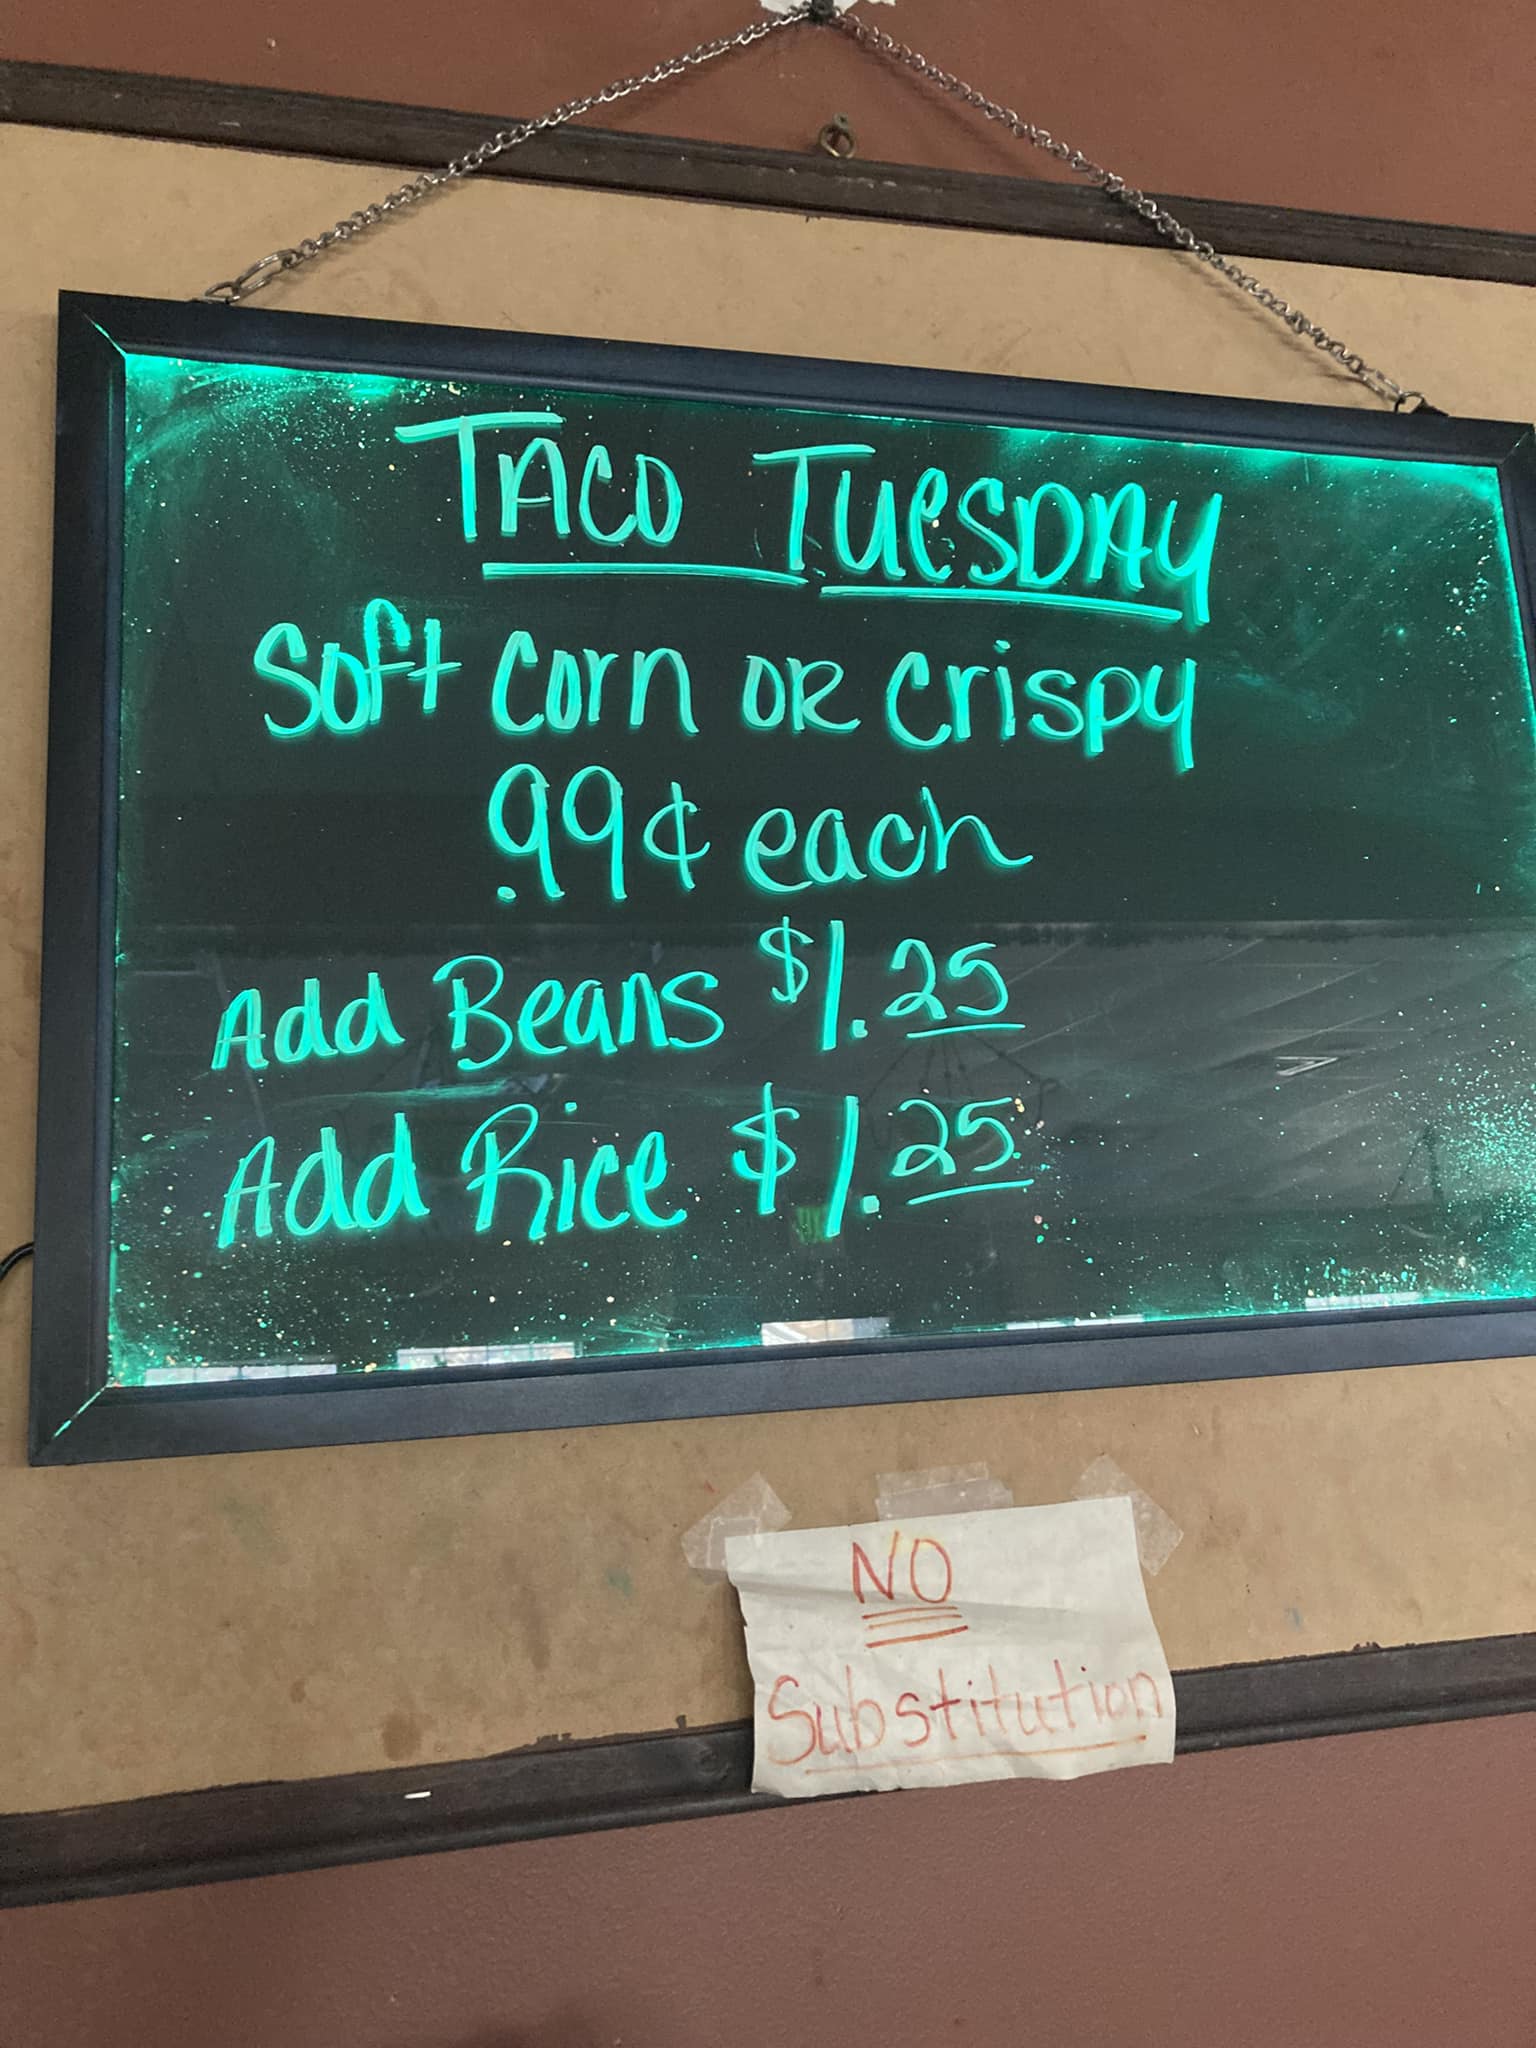 TACO TUESDAY
Soft corn OR crispy
.99¢ each
Add Beans $1.25
Add Rice $1.25
NO
Substitution